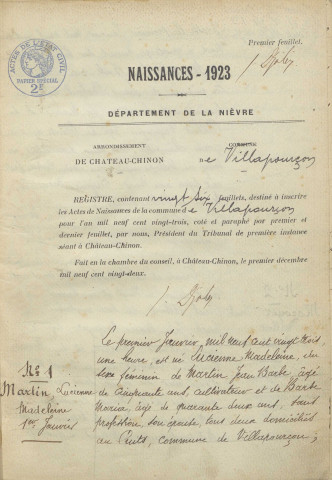 Premier feuillet.
ACTES DE L'ETAT CIVIL
PAPIER SPÉCIAL
2F
NAISSANCES - 1923
DÉPARTEMENT DE LA NIÈVRE
ARRONDISSEMENT
DE CHATEAU-CHINON
COMMUNE
de Villapourçon
REGISTRE, contenant vingt six feuillets, destiné à inscrire
les Actes de Naissances de la commune de Villapourçon
pour l'an mil neuf cent vingt-trois, coté et paraphé par premier et
dernier feuillet, par nous, Président du Tribunal de première instance
séant à Château-Chinon.
Fait en la chambre du conseil, à Château-Chinon, le premier décembre
mil neuf cent vingt-deux.
No 1
Martin Lucienne
Madeleine
1er Janvier
Le premier Janvier, mil neuf cent vingt trois
une heure, est né Lucienne Madeleine, du
sexe féminin de Martin Jean Barbe âgé
de cinquante ans, cultivateur et de Barbe
Maria, âgée de quarante deux ans, sans
profession, son épouse, tous deux domiciliés
au Puits, commune de Villapourçon;